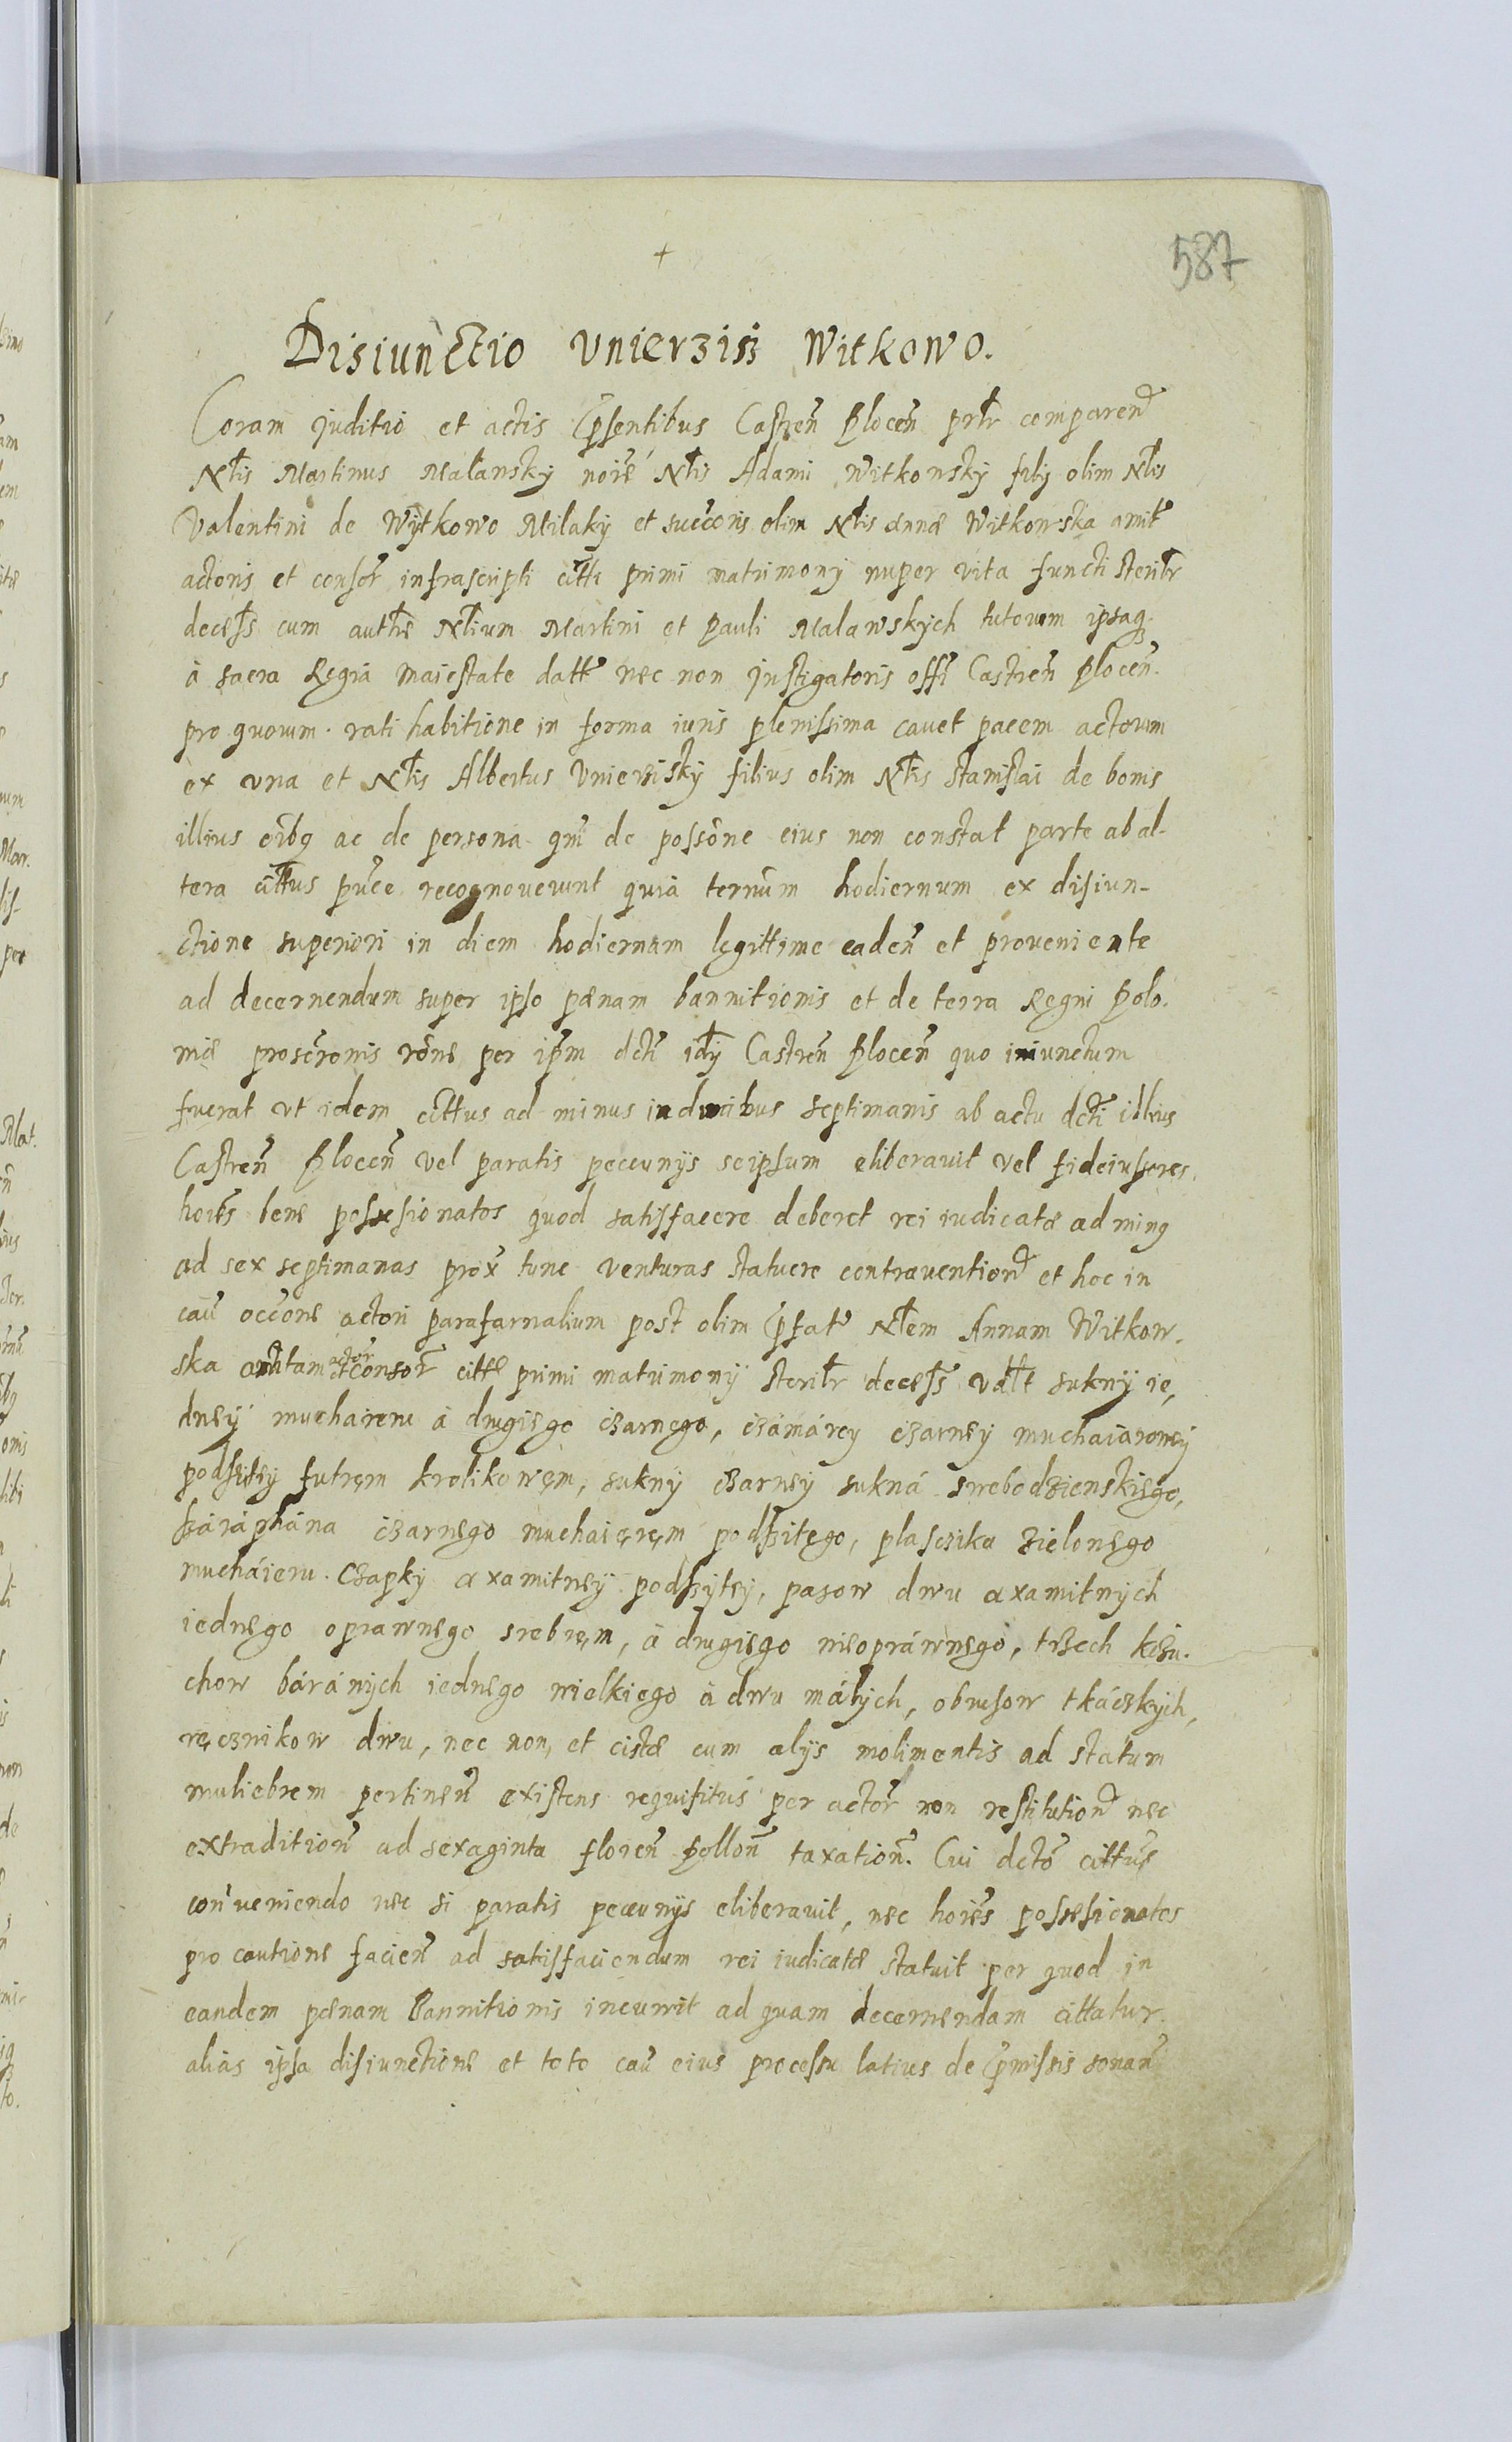 587
+
Disiunctio Unierzisz Witkowo.
Coram juditio et actis p̃sentibus Castreñ Plocen̄ prłr comparen̄
Nłis Martinus Malansky noīe Nłis Adami Witkowsky filij olim Nłis
Valentini de Wytkowo Milaky et succeoris olim Nłis Annæ Witkowska amitæ
actoris et consor̄ infrascripti citti primi matrimonij nuper vita functi sterilr̄
decess̄ cum authẽ Nłium Martini et Pauli Malawskych tutorum ipsaq.
à sacra Regia Maiestate datt̄ nec non Justigatoris offī Castren̄ Plocen̄.
pro quorum rati habitione in forma iuris plenissima cauet pacem actorum
ex una et Nłis Albertus Unierzisky filius olim Nłis Stanislai de bonis
illius oībq ac de persona qm̄ de possōne eius non constat parte ab al-
tera cittus pn̄ce recognoverunt quia ternūm hodiernum ex disiun-
ctione superiori in diem hodiernam legittime caden̄ et proveniente
ad decernendum super ipso pænam bannitionis et de terra Regni Polo.
niæ proscrōnis rōne per ipm̄ dctī idÿ Castren̄ Plocen̄ quo iniunctum
fuerat vt idem cittus ad minus in duabus septimanis ab actu dctī illius
Castren̄ Plocen̄ vel paratis peccunijs seipsum eliberavit vel fideiussores
hoīēs bene possessionatos quod satisfacere deberet rei iudicatæ ad minq
ad sex septimanas prox̄ tunc venturas statuere contravention̄ et hoc in
cau̅ occōne actori parafarnalium post olim p̃fat̄ Nłem Annam Witkow.
ska amitam actor̄ et consor̄ cittē primi matrimonij sterilr̄ decess̄ vdłt sukny ie,
dney muchaieru á drugiego czarnego, czámárey czarney muchaiárowey
podszitey futręm krolikowęm, sukny czarney sukná swebodzienskiego,
száráphána czarnego muchaięręm podszitego, plaszczika zielonego
mucháieru. Czapky axamitney podszytey, pasow dwu axamitnych
iednego oprawnego srebręm, á drugiego nieopráwnego, trzech kożu.
chow báránych iednego wielkiego á dwu máłych, obrusow tkáczkych,
ręcznikow dwu, nec non, et cistæ cum alijs molimentis ad statum
muliebrem pertinen̄ existens requisitus per actor̄ non restitution̄ nec
extradition̄ ad sexaginta floren̄ Pollon̄ taxation̄. Cui dctō cittus
conveniendo nec si paratis peccunijs eliberavit, nec hoīēs possesionatos
pro cautione facien̄ ad satisfaciendum rei iudicatæ statuit per quod in
eandem pænam Bannitionis incurrit ad quam decernendam cittatur.
aliás ipsa disiunctione et toto cau̅ eius processu latius de p̃missis sonan̄